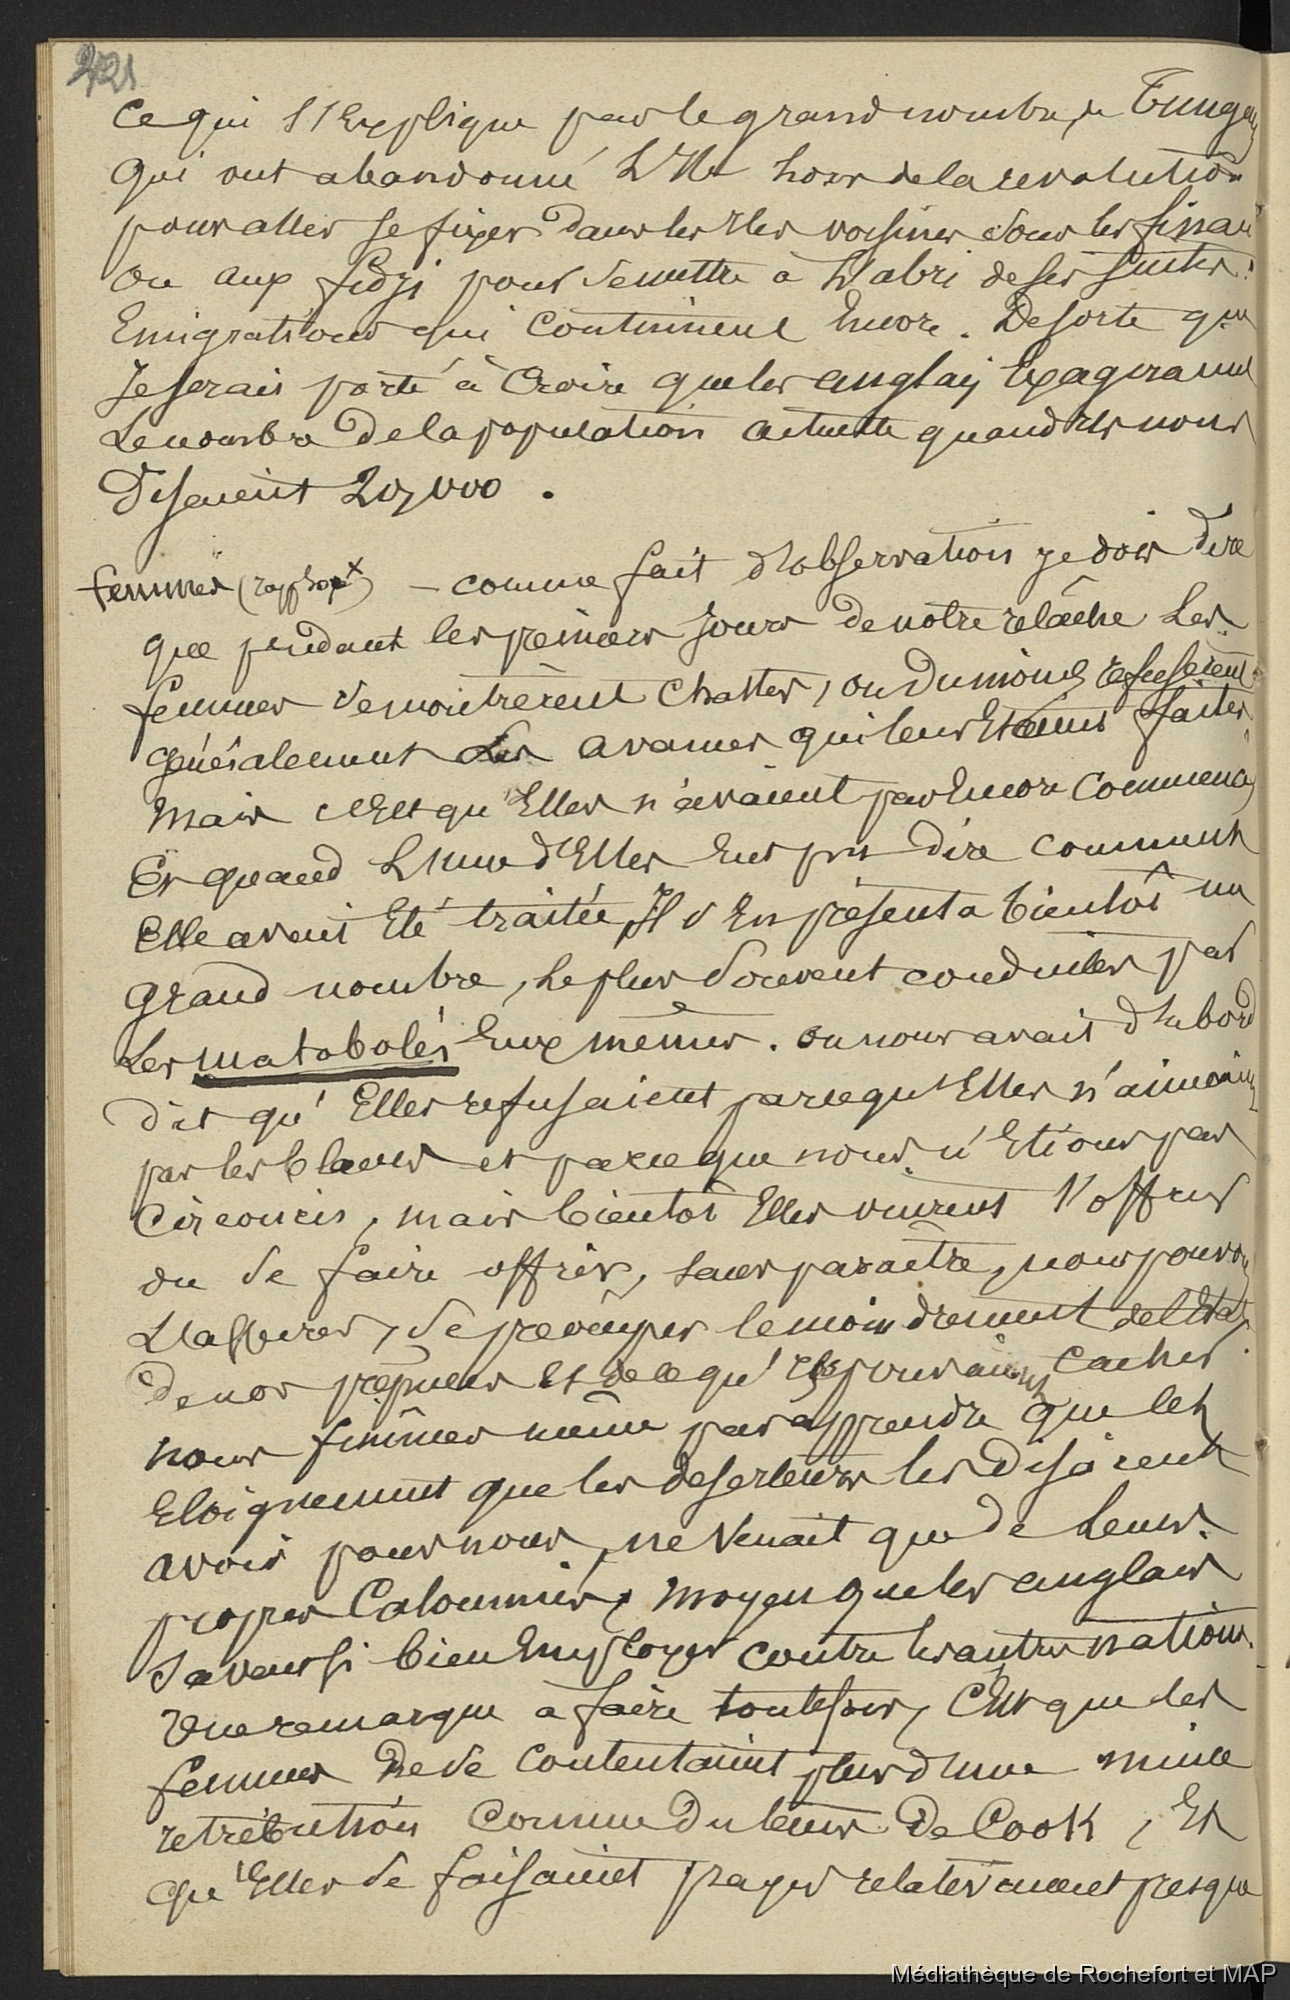 221
Ce qui s'explique par le grand nombre de Tunga
qui ont abandonné l'Ile lors de la revolution
pour aller se fixer dans les Iles voisines sous les finau
ou aux fidji pour se mettre à l'abri de ses suites.
Emigrations qui continuent Encore. De sorte que
Je serais porté à Croire que les anglais Exageraient
Le nombre de la population actuelle quand Ils nous
Disaient 20,000 .
femmes (rapports) — comme fait d'observation je dois dire
que pendant les premiers Jours de notre relâche Les
femmes se montrèrent Chastes, ou du moins refuserent
généralement Les avances qui leur Etaient faites
Mais c'Est qu'Elles n'avaient pas Encore Commencé
Et quand L'une d'Elles Eut pu Dire comment
Elle avait Eté traitée, Il s'En présenta bientôt un
grand nombre, Le plus souvent conduites par
Les matabolés Eux mêmes. on nous avait d'abord
dit qu'Elles refusaient parcequ'Elles n'aimaient
pas les blancs et parce que nous n'Etions pas
Circoncis, mais bientôt Elles vinrent s'offrir
ou se faire offrir, sans paraître, nous pouvons
L'assurer, se préoccuper le moindrement de l'Etat
de nos prépuces Et de ce qu'Ils pouvaient cacher
nous finîmes même par apprendre que les
Eloignement que les deserteurs les disaient
avoir pour nous, ne venait que de Leurs
propres Calomnies, moyen que les anglais
savent si bien Employer contre les autres nations.
Une remarque à faire toutefois, C'Est que les
femmes ne se contentaient plus d'une mince
retribution Comme du tems De Cook, Et
qu'Elles se faisaient payer relativement presque
Médiathèque de Rochefort et MAP